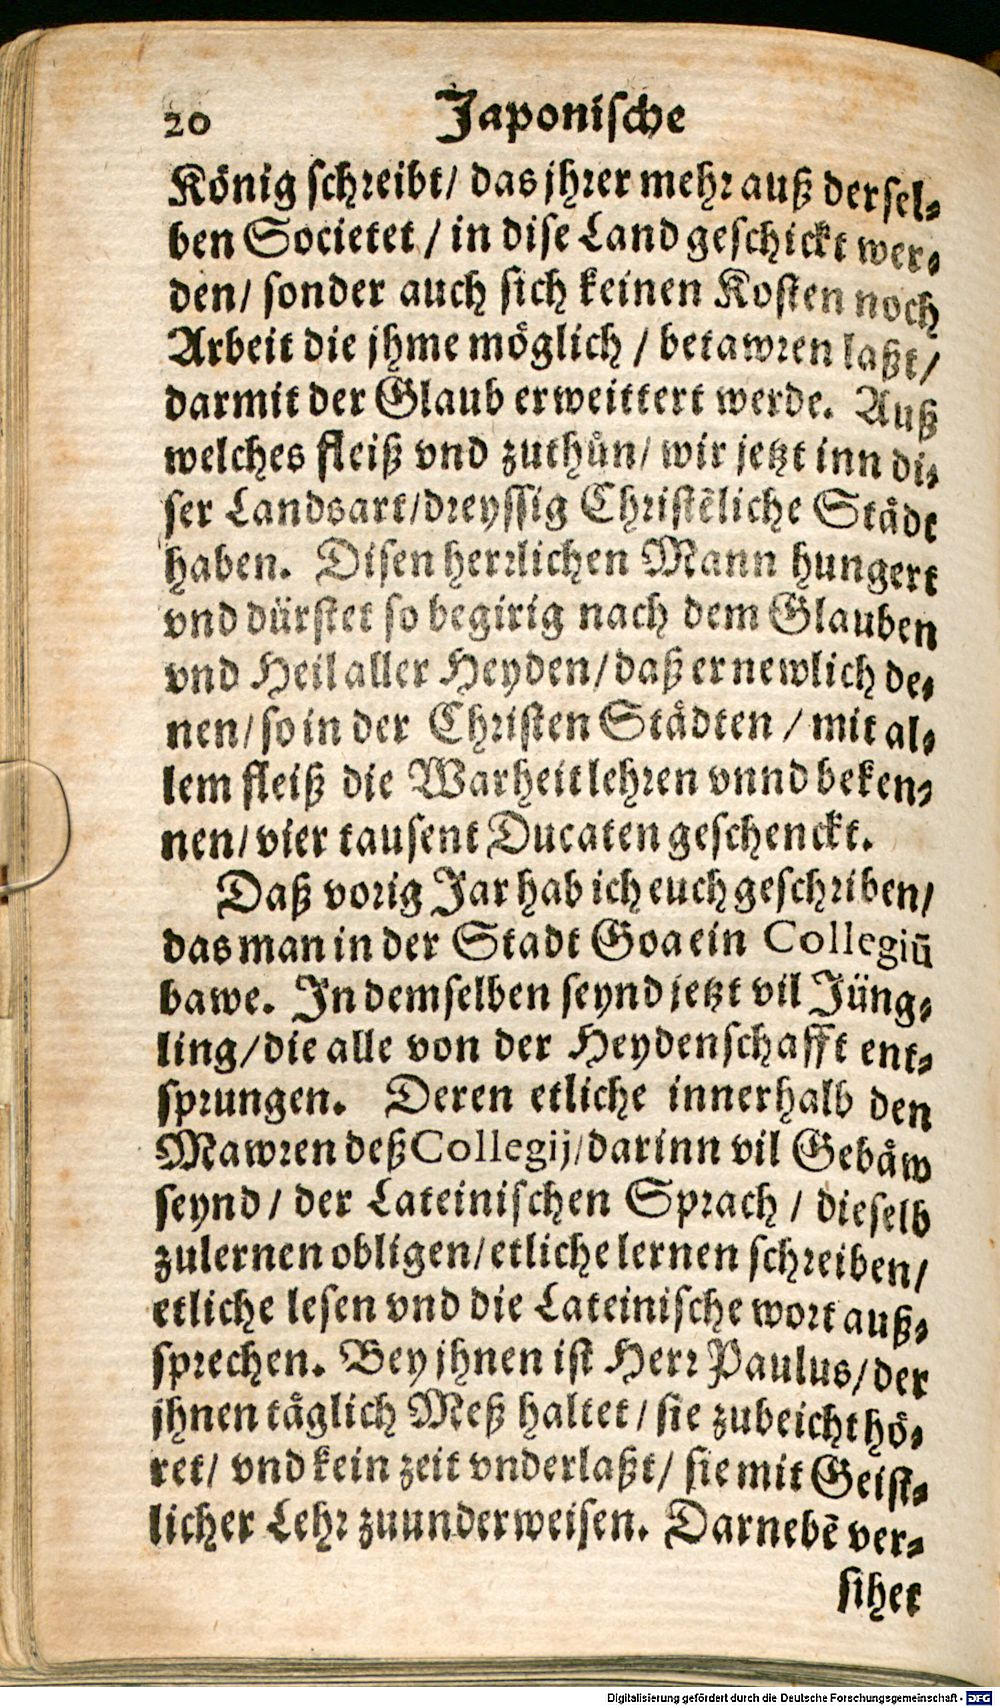 20 Japonische
König schreibt/ das jhrer mehr auß dersel-
ben Societet / in dise Land geschickt wer-
den/ sonder auch sich keinen Kosten noch
Arbeit die jhme möglich / betawren laßt/
darmit der Glaub erweittert werde. Auß
welches fleiß vnd zuthůn/ wir jetzt inn di-
ser Landsart/dreyssig Christēliche Städt
haben. Disen herrlichen Mann hungert
vnd dürstet so begirig nach dem Glauben
vnd Heil aller Heyden/daß er newlich de-
nen/so in der Christen Städten / mit al-
lem fleiß die Warheit lehren vnnd beken-
nen/vier tausent Ducaten geschenckt.
Daß vorig Jar hab ich euch geschriben/
das man in der Stadt Goa ein Collegiū
bawe. In demselben seynd jetzt vil Jüng-
ling/die alle von der Heydenschafft ent-
sprungen. Deren etliche innerhalb den
Mawren deß Collegij/darinn vil Gebäw
seynd / der Lateinischen Sprach / dieselb
zulernen obligen/etliche lernen schreiben/
etliche lesen vnd die Lateinische wort auß-
sprechen. Bey jhnen ist Herr Paulus/der
jhnen täglich Meß haltet / sie zubeicht hö-
ret/ vnd kein zeit vnderlaßt/ sie mit Geist-
licher Lehr zuunderweisen. Darnebē ver-
sihet
Digitalisierung gefördert durch die Deutsche Forschungsgemeinschaft - DFG